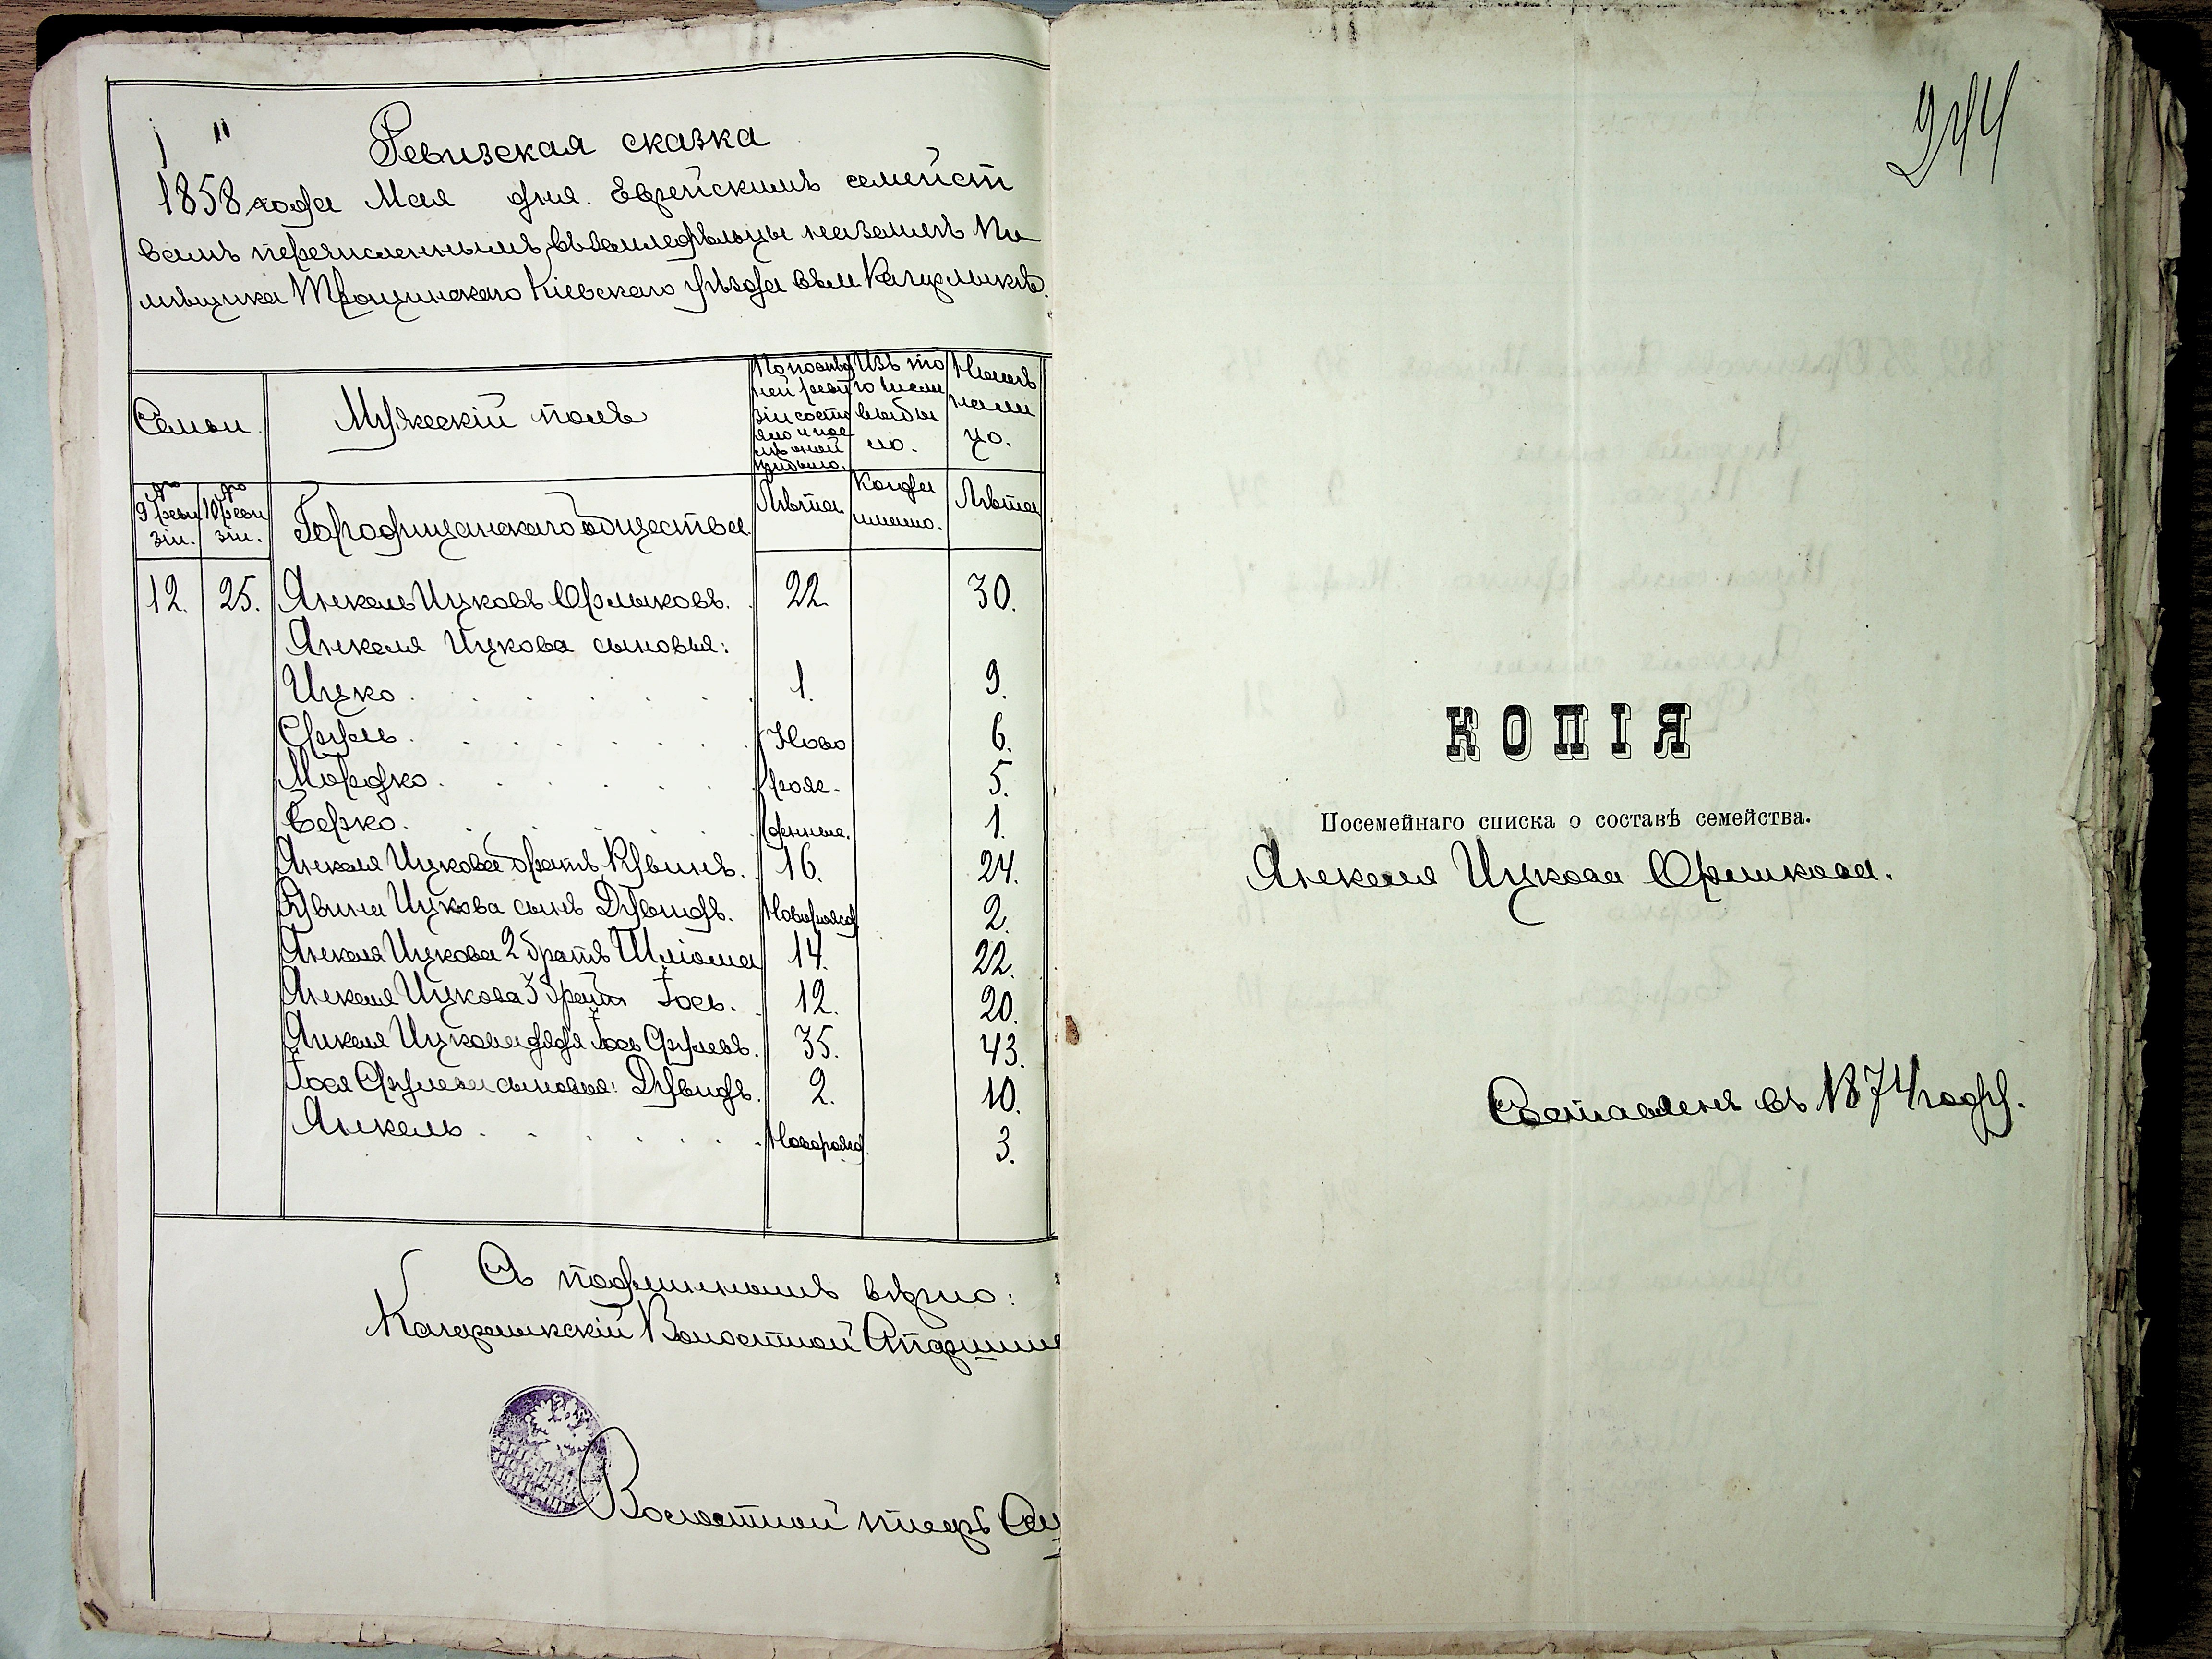 Ревизская сказка
1858 года Мая дня. Еврейскимъ семейст
вамъ перечисленнымъ въ земледѣльцы на земляхъ По
мѣщика Трощинскаго Кіевскаго уѣзда въ м. Кагарлыкѣ.
Семьи.
Мужескій полъ
По послѣд
ней реви
зіи состо
яло и пос
лѣ оной
прибыло.
Изъ то
го числа
выбы
ло.
Нынѣ
на ли
цо.
по
9 реви
зіи.
по
10 реви
зіи.
Городищанскаго общества
Лѣта
Когда
именно.
Лѣта
12. 25. Янкель Ицковъ Орлыковъ. 22. 30.
Янкеля Ицкова сыновья:
Ицко. 1. 9.
Сруль. Ново 6.
Мордко. рож- 5.
Берко. денные. 1.
Янкеля Ицкова братъ Рувинъ. 16. 24.
Рувина Ицкова сынъ Дувидъ.Новорожд 2.
Янкеля Ицкова 2 братъ Шліома 14. 22.
Янкеля Ицкова 3 братъ Іось. 12. 20.
Янкеля Ицкова дядя Іось Срулевъ. 35. 43.
Іося Срулева сыновья: Дувидъ. 2. 10.
Янкель.Новорожд. 3.
Съ подлиннымъ вѣрно:
Кагарлыкскій Волостной Старшина
Волостной писарь
244
КОПІЯ
Посемейнаго списка о составѣ семейства.
Янкеля Ицкова Орликова.
Составленъ въ 1874 году.